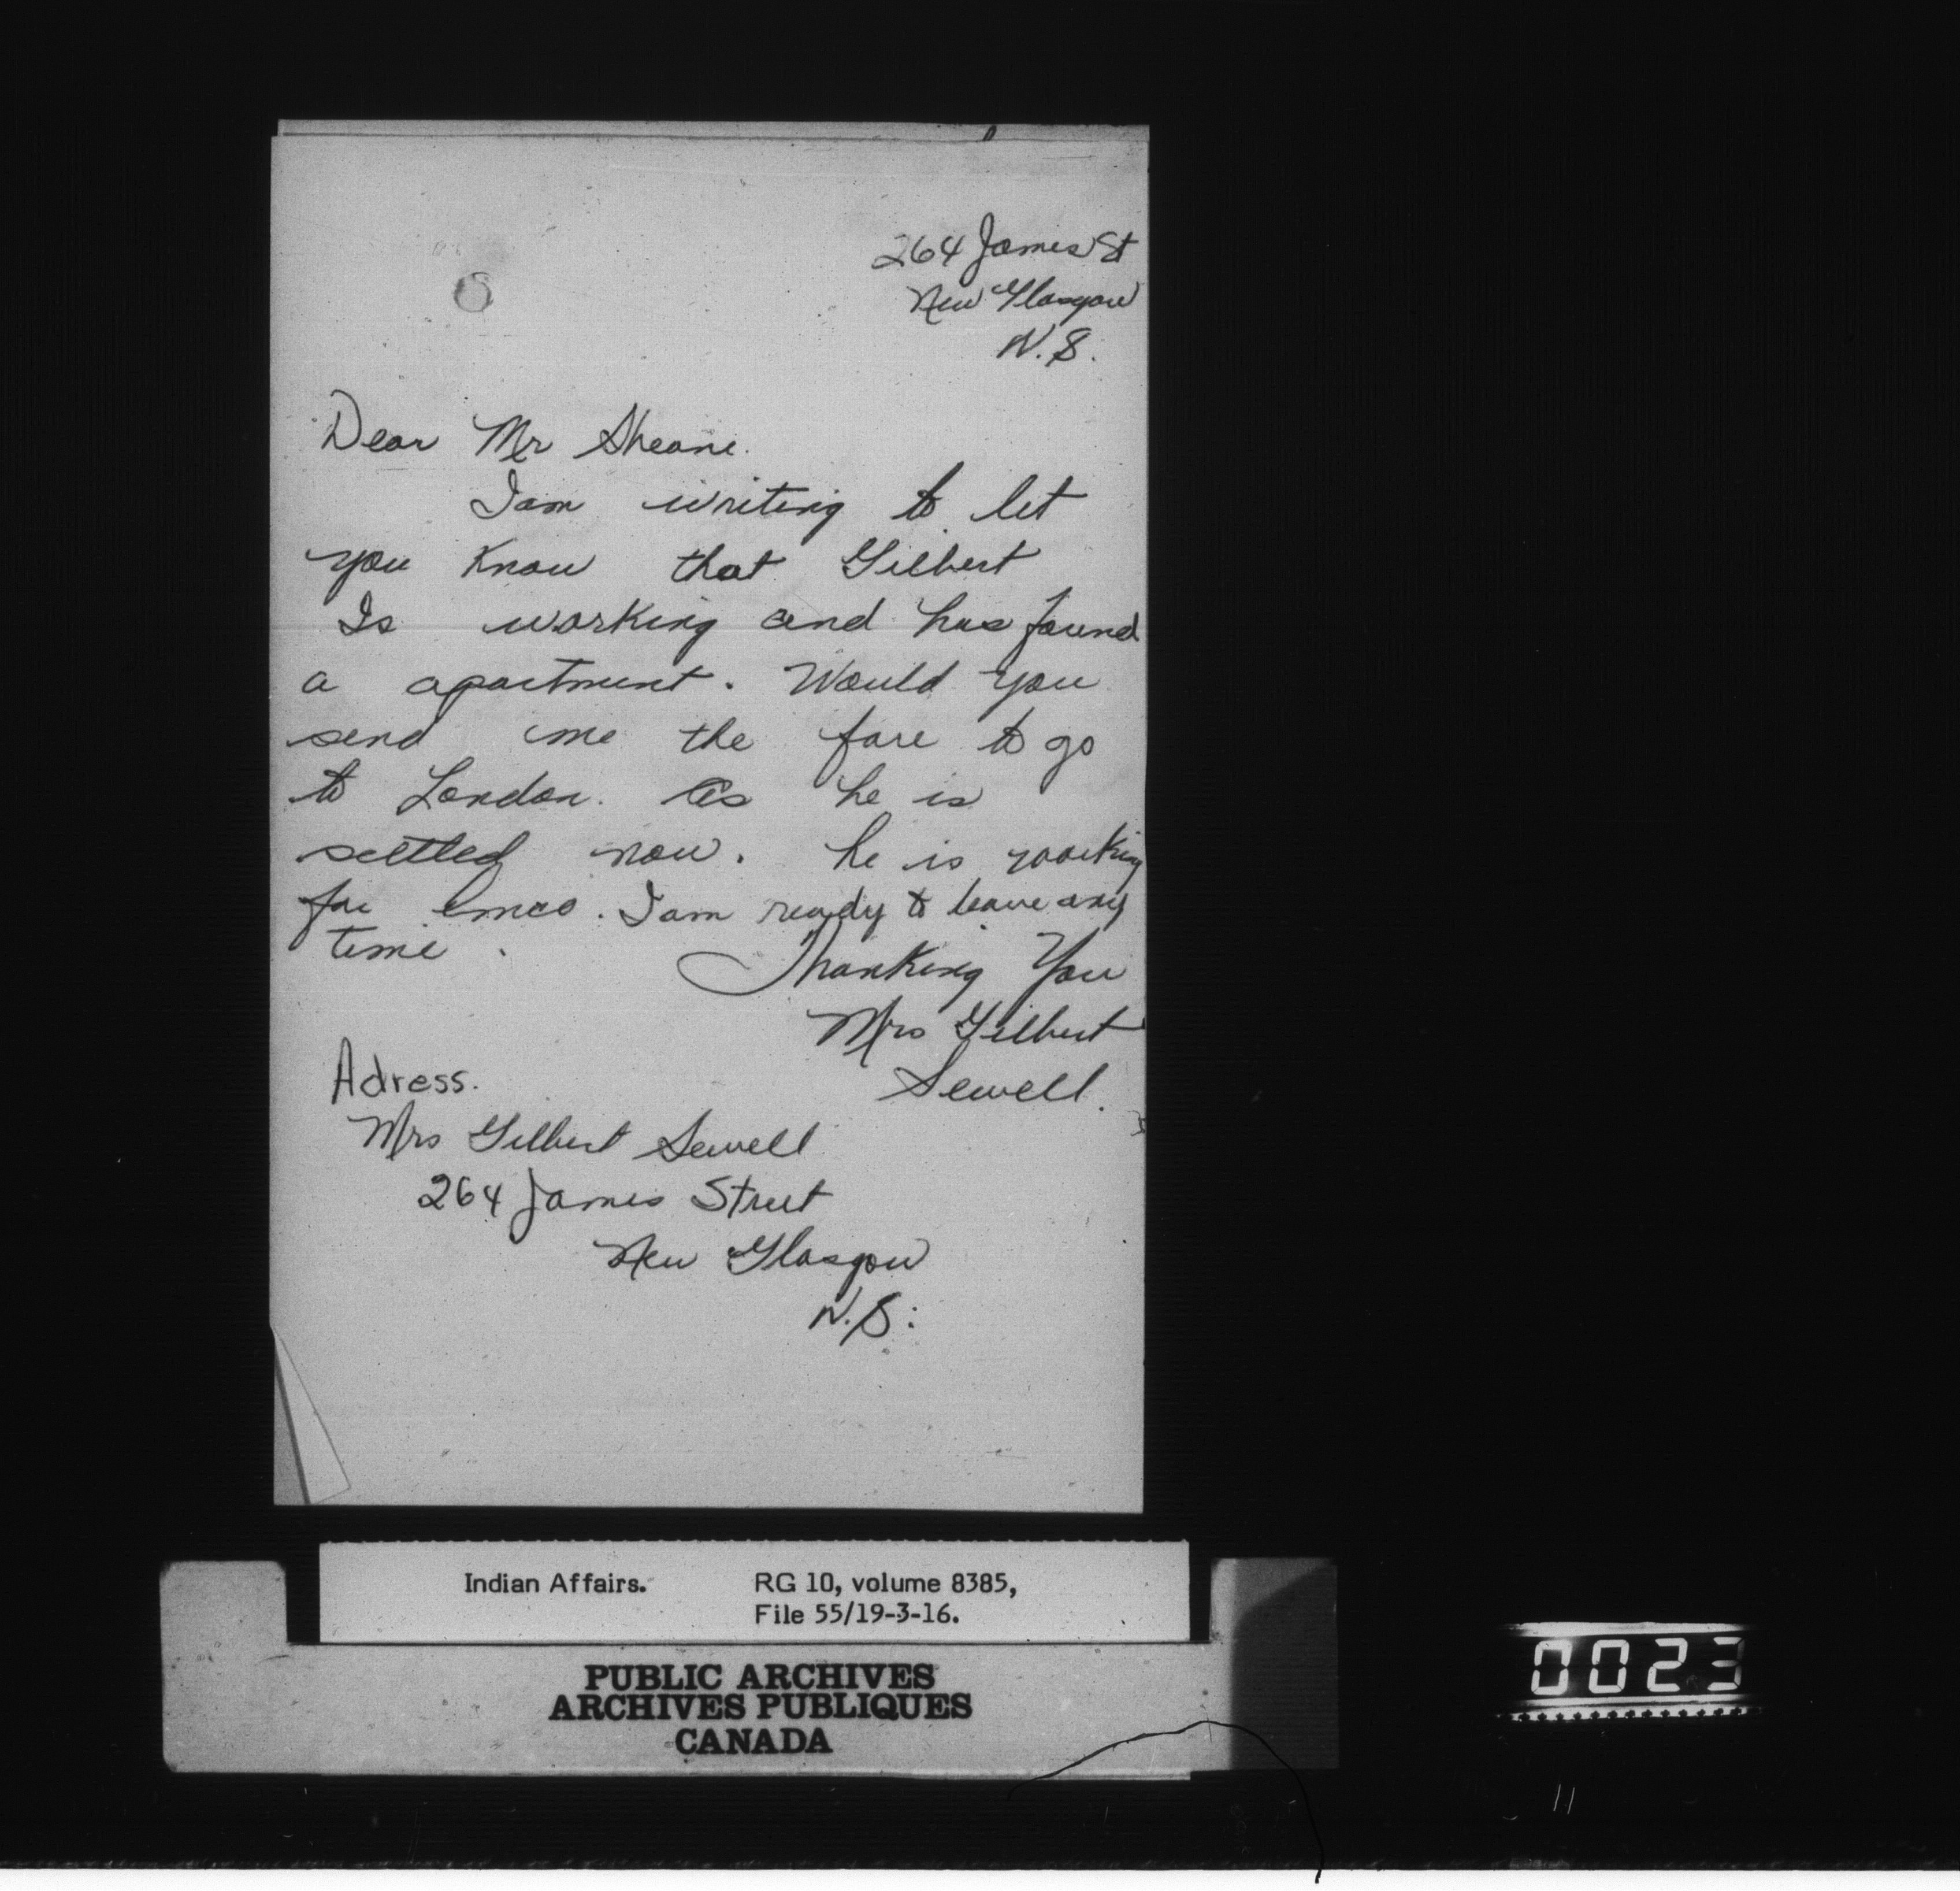 264 James St
New Glasgow
N.S.
Dear Mr Sheane.
I am writing to let
you know that Gilbert
Is working and has found
a apartment. Would you
send me the fare to go
to London. As he is
settled now. he is working
for Emco. I am ready to leave any
time.
Thanking You
Mrs Gilbert
Sewell.
Adress.
Mrs Gilbert Sewell
264 James Street
New Glasgow
N.S.
Indian Affairs. RG 10, volume 8385,
File 55/19-3-16.
PUBLIC ARCHIVES
ARCHIVES PUBLIQUES
CANADA
0023